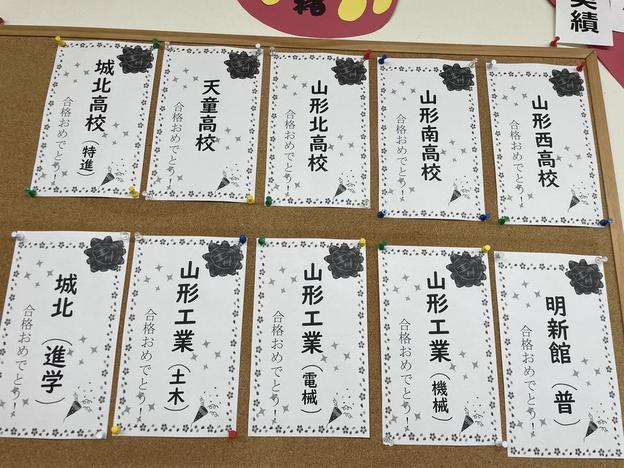 実績
山形西高校
合格おめでとう！
山形南高校
合格おめでとう！
山形北高校
合格おめでとう！
天童高校
合格おめでとう！
城北高校（特進）
合格おめでとう！
明新館（普）
合格おめでとう！
山形工業（機械）
合格おめでとう！
山形工業（電械）
合格おめでとう！
山形工業（土木）
合格おめでとう！
城北（進学）
合格おめでとう！